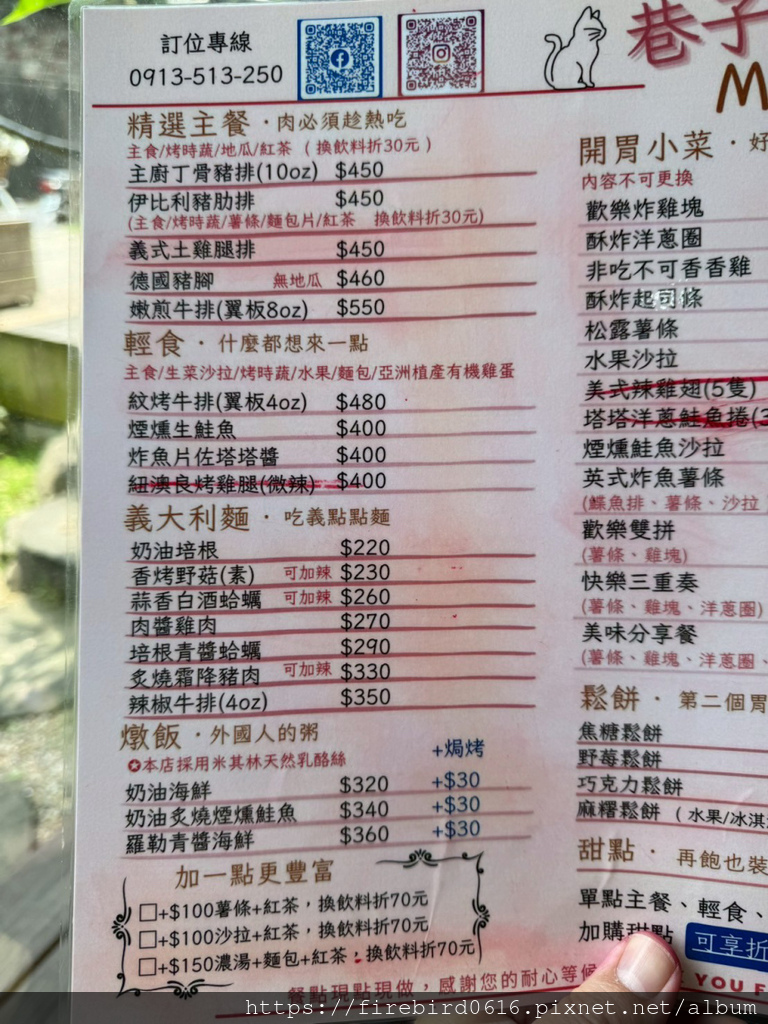 訂位專線
0913-513-250
巷子
M
精選主餐・肉必須趁熱吃
主食/烤時蔬/地瓜/紅茶 (換飲料折30元)
主廚丁骨豬排(10oz) $450
伊比利豬肋排 $450
(主食/烤時蔬/薯條/麵包片/紅茶 換飲料折30元)
義式土雞腿排 $450
德國豬腳 無地瓜 $460
嫩煎牛排(翼板8oz) $550
輕食・什麼都想來一點
主食/生菜沙拉/烤時蔬/水果/麵包/亞洲植產有機雞蛋
紋烤牛排(翼板4oz) $480
煙燻生鮭魚 $400
炸魚片佐塔塔醬 $400
紐澳良烤雞腿(微辣) $400
義大利麵・吃義點點麵
奶油培根 $220
香烤野菇(素) 可加辣 $230
蒜香白酒蛤蠣 可加辣 $260
肉醬雞肉 $270
培根青醬蛤蠣 $290
炙燒霜降豬肉 可加辣 $330
辣椒牛排(4oz) $350
燉飯・外國人的粥 +焗烤
✪本店採用米其林天然乳酪絲
奶油海鮮 $320 +$30
奶油炙燒煙燻鮭魚 $340 +$30
羅勒青醬海鮮 $360 +$30
加一點更豐富
□+$100薯條+紅茶，換飲料折70元
□+$100沙拉+紅茶，換飲料折70元
□+$150濃湯+麵包+紅茶，換飲料折70元
開胃小菜・好
內容不可更換
歡樂炸雞塊
酥炸洋蔥圈
非吃不可香香雞
酥炸起司條
松露薯條
水果沙拉
美式辣雞翅(5隻)
塔塔洋蔥鮭魚捲(3
煙燻鮭魚沙拉
英式炸魚薯條
(鰈魚排、薯條、沙拉)
歡樂雙拼
(薯條、雞塊)
快樂三重奏
(薯條、雞塊、洋蔥圈)
美味分享餐
(薯條、雞塊、洋蔥圈、
鬆餅・第二個胃
焦糖鬆餅
野莓鬆餅
巧克力鬆餅
麻糬鬆餅 (水果/冰淇
甜點・再飽也裝
單點主餐、輕食、
加購甜點 可享折
餐點現點現做，感謝您的耐心等候 YOU F
https://firebird0616.pixnet.net/album